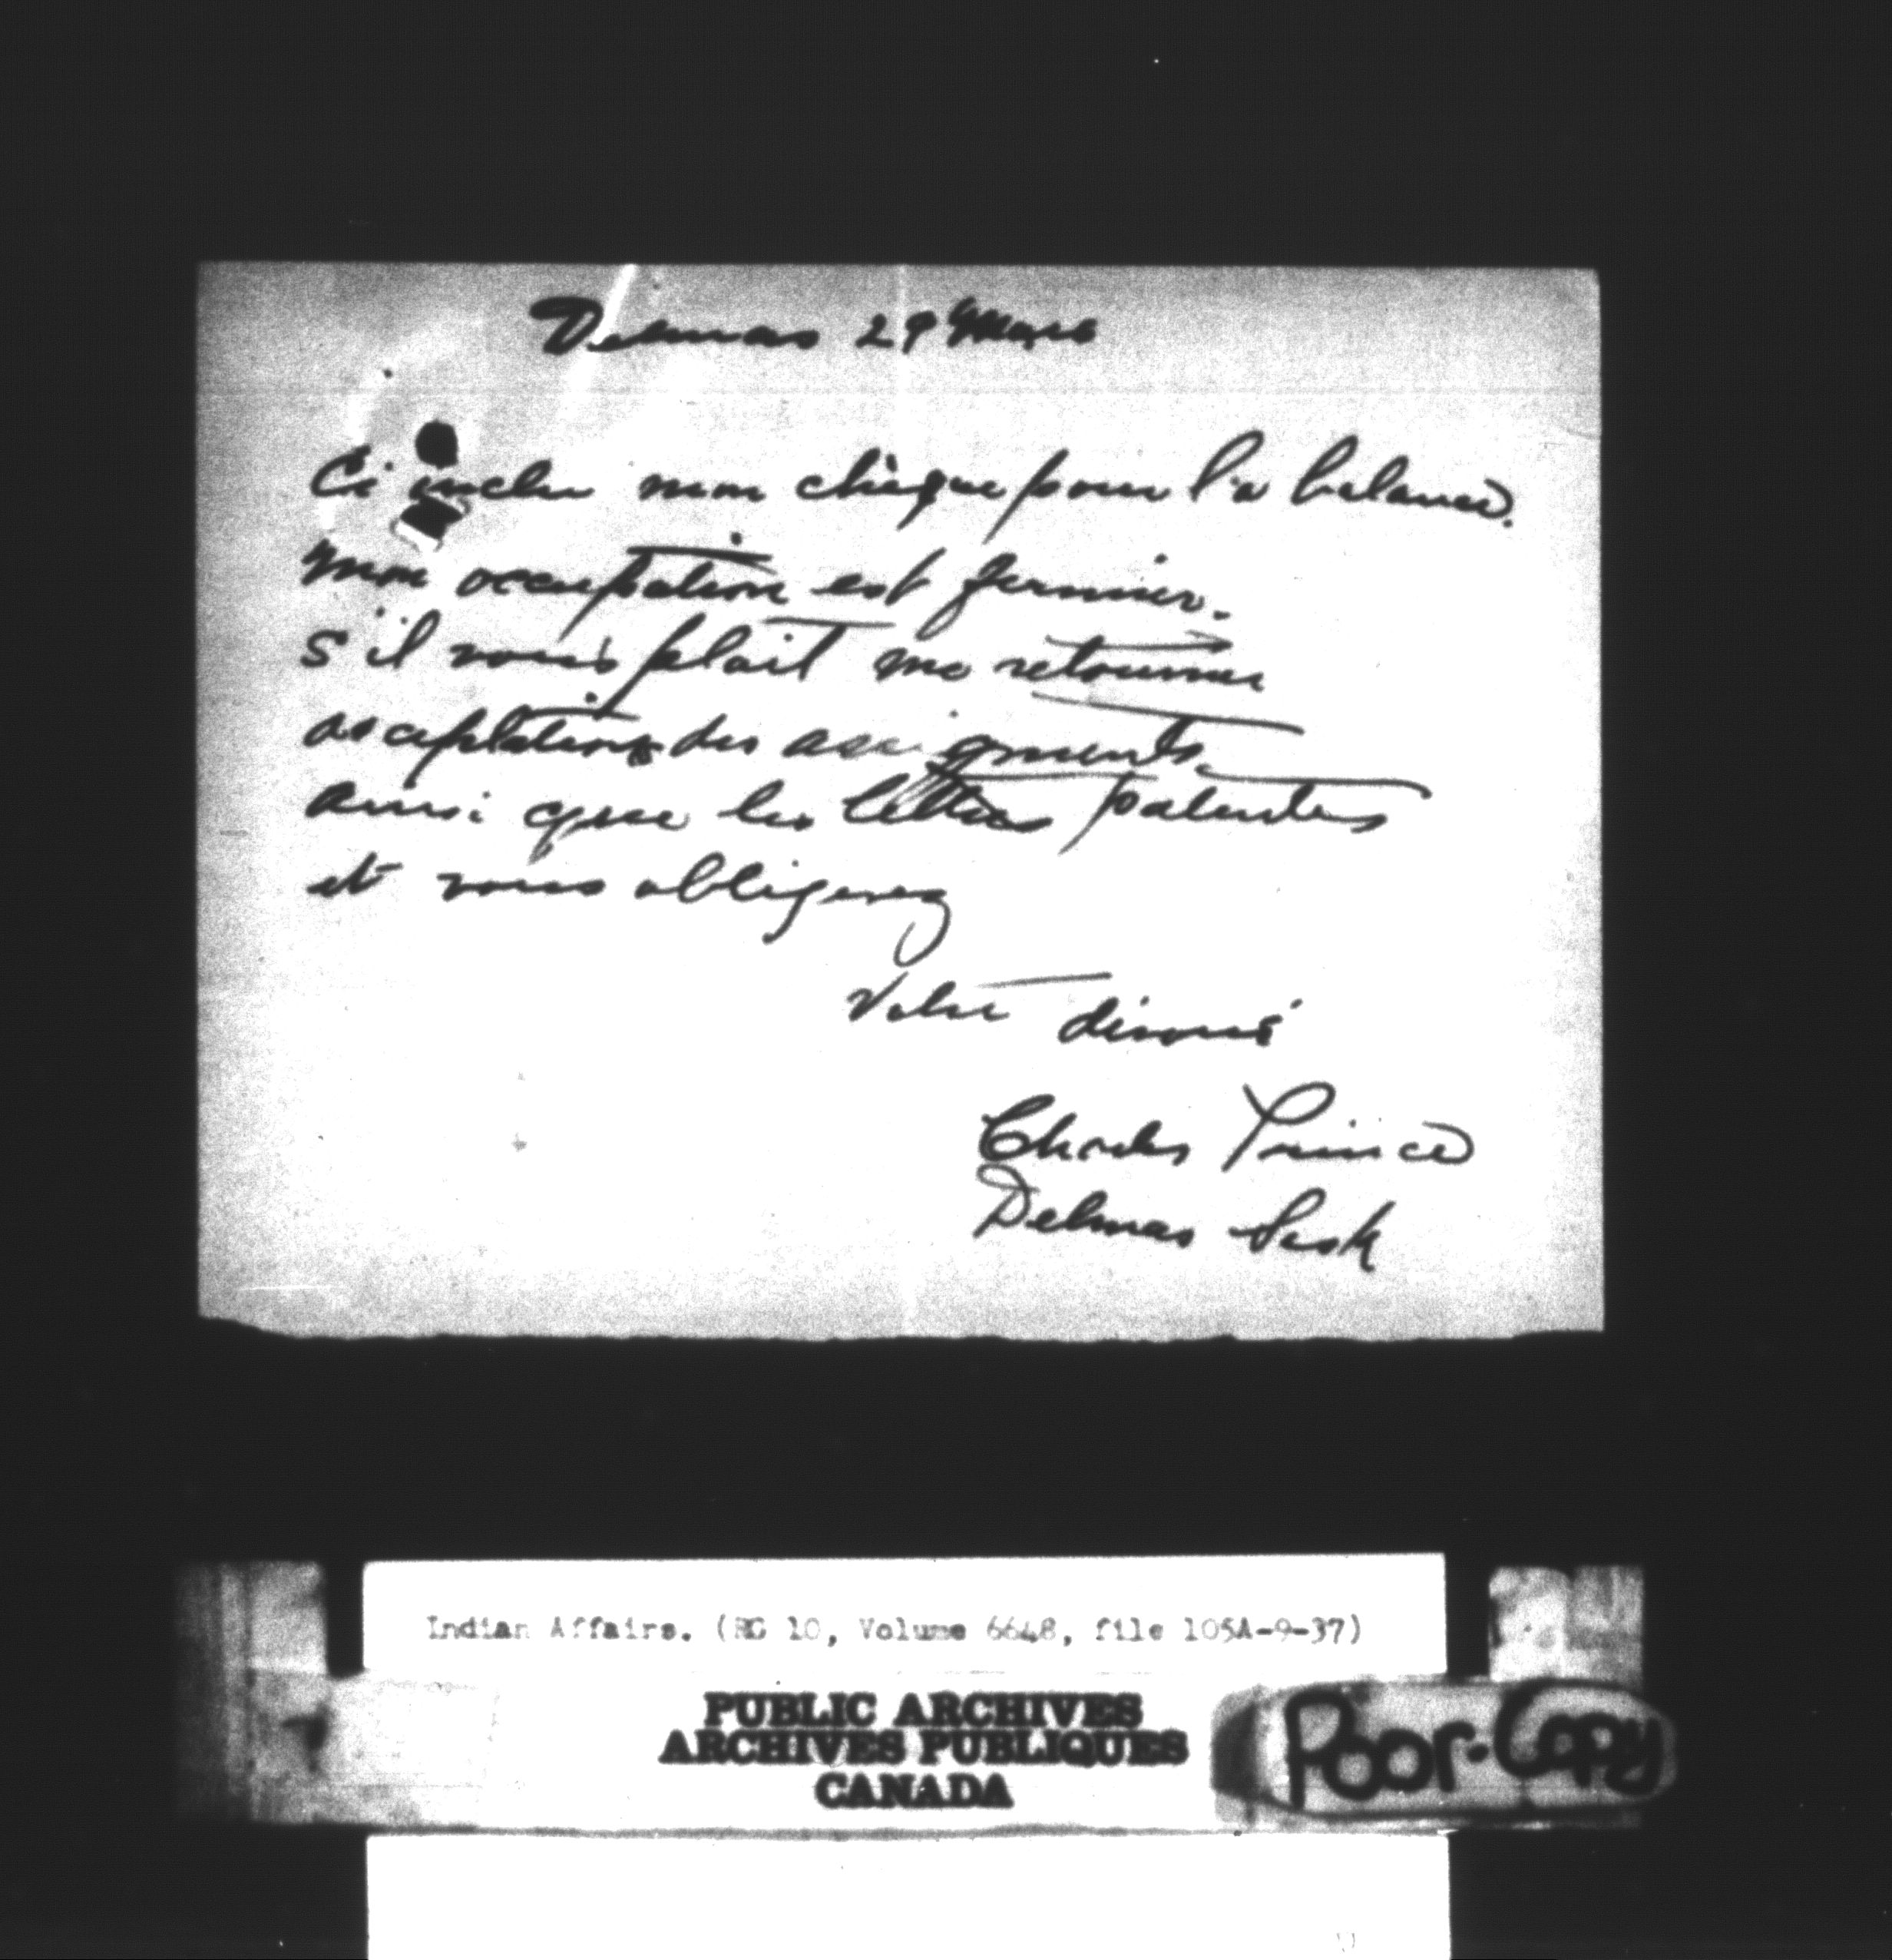 Delmas 29 Mars
Ci inclu mon chèque pour la balance.
Mon occupation est fermier.
S'il vous plait me retourner
acceptations des assigments.
ainsi que les lettres patentes
et vous obligerez
Votre dévoué
Charles Prince
Delmas Sask
Indian Affairs. (RG 10, Volume 6648, file 105A-9-37)
PUBLIC ARCHIVES
ARCHIVES PUBLIQUES
CANADA
Poor-Copy